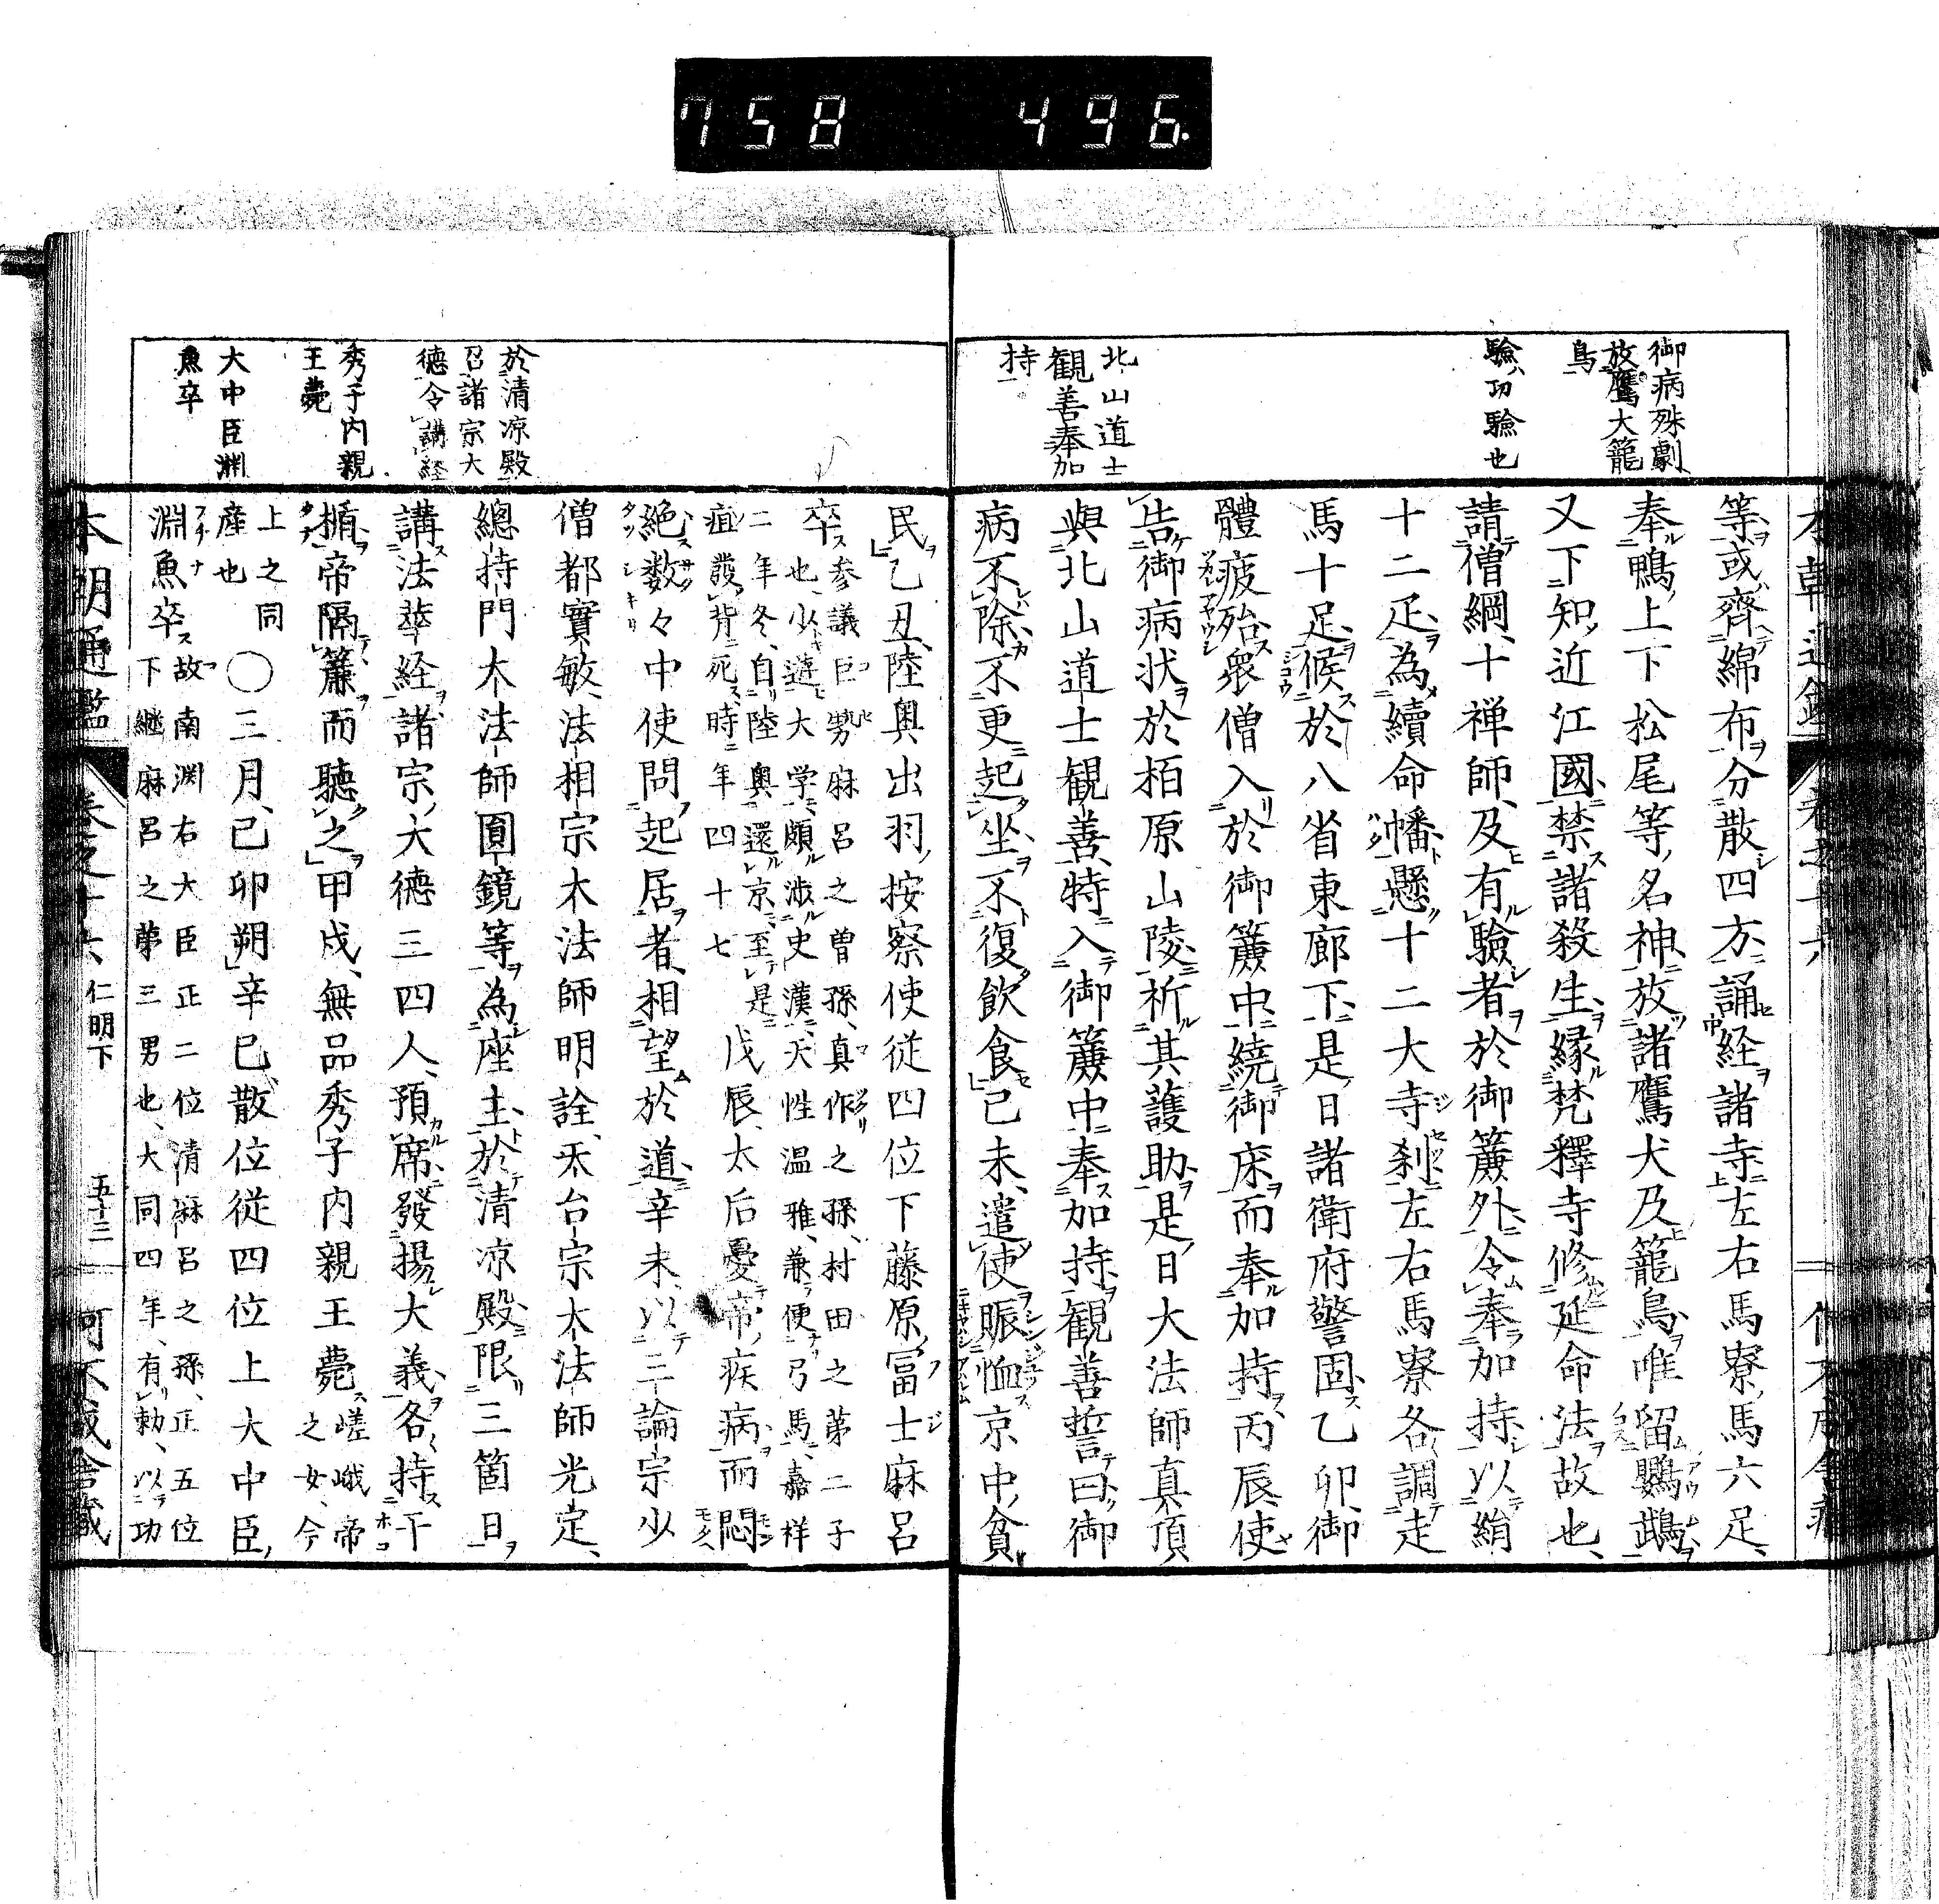 758 496.
御病殊劇
放鷹犬籠
鳥
驗、功驗也
北山道士
観善奉加
持
等或齊綿布分散四方誦経諸寺左右馬寮馬六疋、
奉鴨上下松尾等名神放諸鷹犬及籠鳥唯留鸚鵡
又下知近江國禁諸殺生縁梵釋寺修延命法故也、
請僧綱、十禅師、及有驗者於御簾外令奉加持以絹
十二疋為續命幡懸十二大寺刹左右馬寮各調走
馬十疋候於八省東廊下是日諸衛府警固乙卯御
體疲殆衆僧入於御簾中繞御床而奉加持丙辰使
告御病状於栢原山陵祈其護助是日大法師真頂
與北山道士観善特入御簾中奉加持観善誓曰御
病不除不更起坐不復飲食己未遣使賑恤京中貧
於清凉殿
召諸宗大
德令講経
秀子内親
王薨
大中臣淵
魚卒
民乙丑陸奥出羽按察使従四位下藤原冨士麻呂
卒参議巨勢麻呂之曽孫、真作之孫、村田之第二子
也、少遊大学頗渉史漢天性温雅、兼便弓馬、嘉祥
二年冬、自陸奥還京至是
疽發背死時年四十七
戊辰太后憂帝疾病而悶
絶数々中使問起居者相望於道辛未以三論宗少
僧都實敏、法相宗大法師明詮、天台宗大法師光定、
總持門大法師圓鏡等為座主於清凉殿限三箇日
講法華経諸宗大德三四人預席發揚大義各持干
揗帝隔簾而聽之甲戌無品秀子内親王薨嵯峨帝
之女、今
上之同
産也 ○三月、己卯朔辛巳散位従四位上大中臣
淵魚卒故南淵右大臣正二位清麻呂之孫、正五位
下継麻呂之第三男也、大同四年、有勅、以功
本朝通鑑 卷之十六 仁明下 五十三